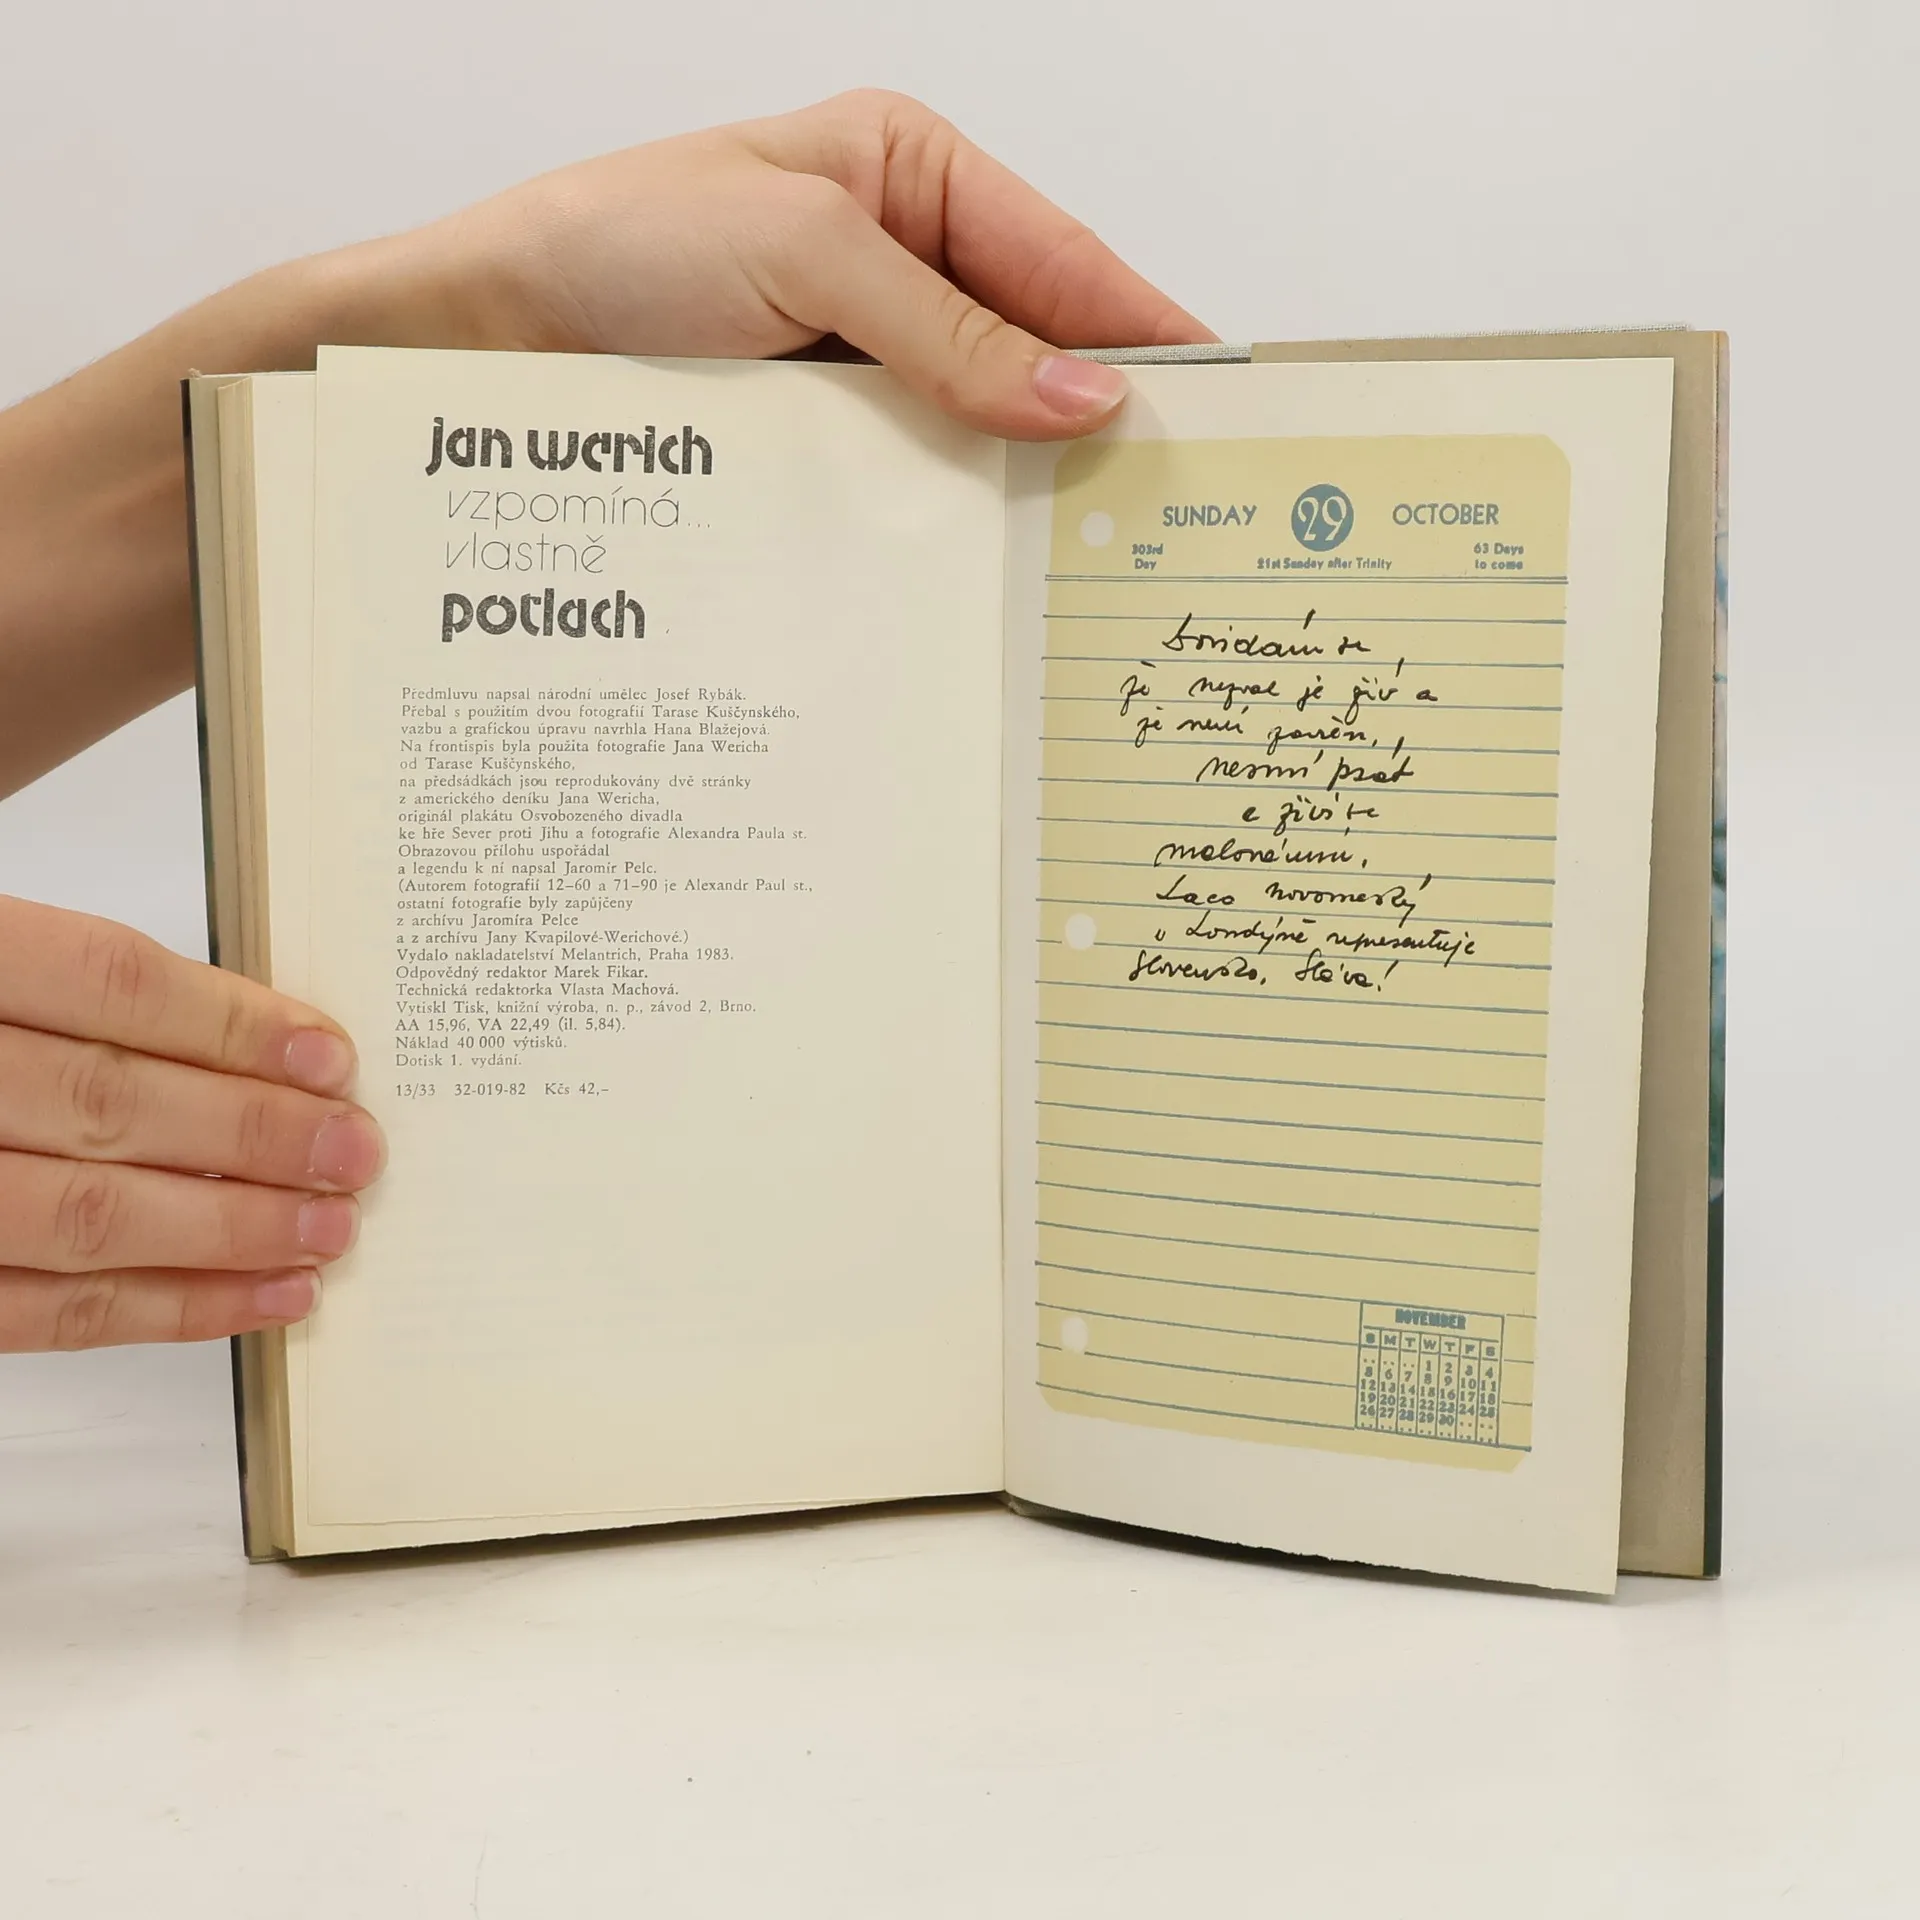 jan werich
vzpomíná...
vlastně
potlach
Předmluvu napsal národní umělec Josef Rybák.
Přebal s použitím dvou fotografií Tarase Kuščynského,
vazbu a grafickou úpravu navrhla Hana Blažejová.
Na frontispis byla použita fotografie Jana Wericha
od Tarase Kuščynského,
na předsádkách jsou reprodukovány dvě stránky
z amerického deníku Jana Wericha,
originál plakátu Osvobozeného divadla
ke hře Sever proti Jihu a fotografie Alexandra Paula st.
Obrazovou přílohu uspořádal
a legendu k ní napsal Jaromír Pelc.
(Autorem fotografií 12–60 a 71–90 je Alexandr Paul st.,
ostatní fotografie byly zapůjčeny
z archívu Jaromíra Pelce
a z archívu Jany Kvapilové-Werichové.)
Vydalo nakladatelství Melantrich, Praha 1983.
Odpovědný redaktor Marek Fikar.
Technická redaktorka Vlasta Machová.
Vytiskl Tisk, knižní výroba, n. p., závod 2, Brno.
AA 15,96, VA 22,49 (il. 5,84).
Náklad 40 000 výtisků.
Dotisk 1. vydání.
13/33 32-019-82 Kčs 42,–
SUNDAY 29 OCTOBER
303rd Day 21st Sunday after Trinity 63 Days to come
Dovídám se,
že Nezval je živ a
že není zavřen,
nesmí psát
a živí se
malováním.
Laco Novomeský
v Londýně representuje
Slovensko. Sláva!
NOVEMBER
S M T W T F S
.. .. .. 1 2 3 4
6 7 8 9 10 11
12 13 14 15 16 17 18
19 20 21 22 23 24 25
26 27 28 29 30 .. ..